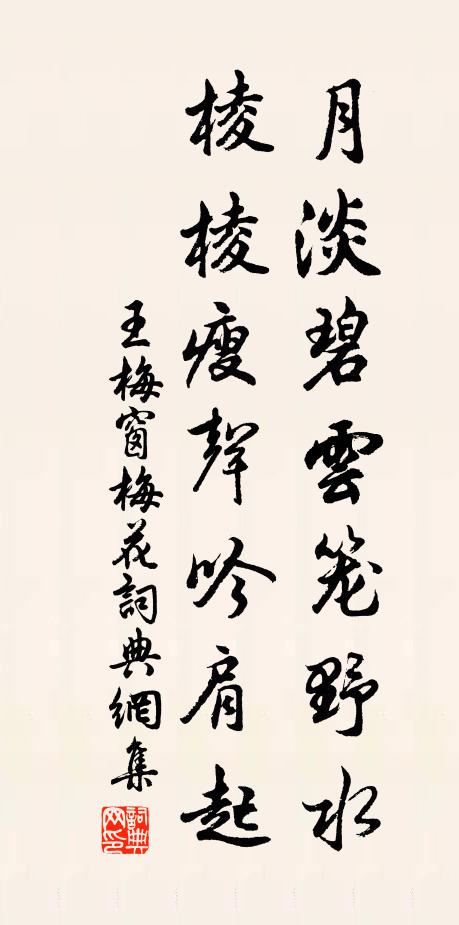 月淡碧雲笼野水
棱棱瘦聲吟肩起
王梅窗梅花詞典網集
詞典网印